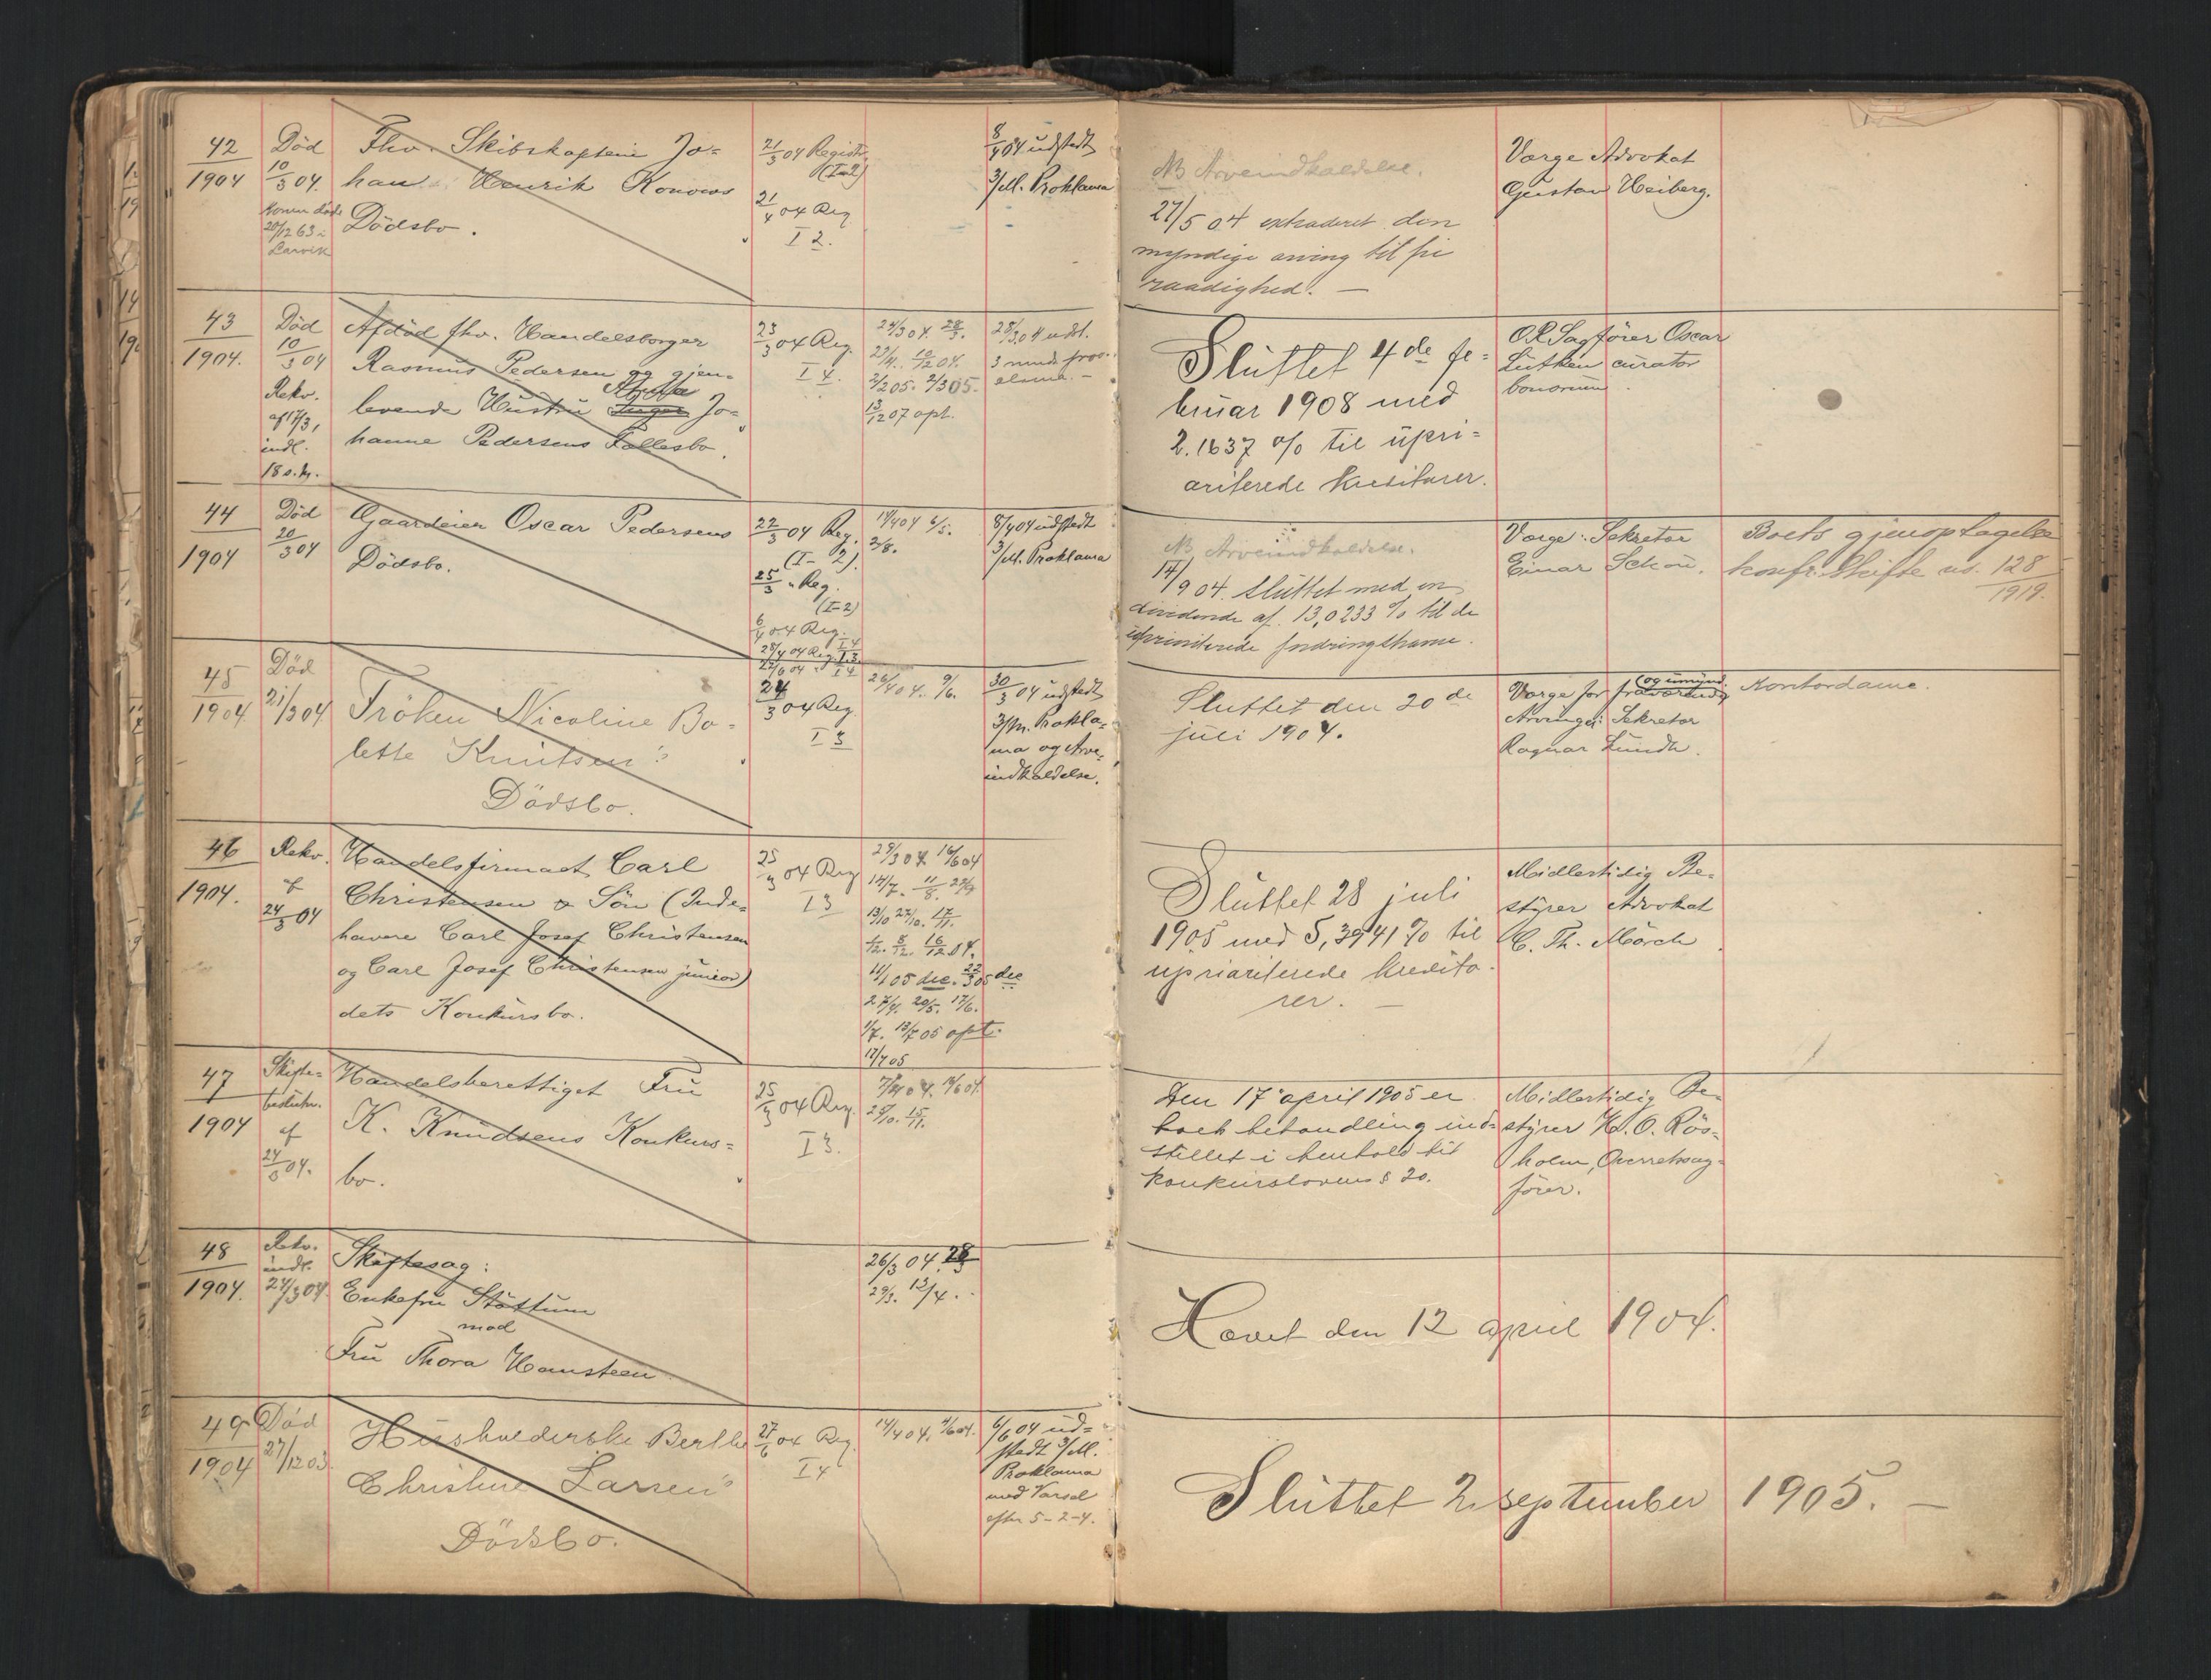 42
1904
Död
10/3 04.
konen død
20/12 63 i
Larvik
Fhv. Skibskaptein Jo-
han Henrik Konows
Dödsbo.
21/3 04 Registr.
(I-2)
21/4 04 Reg
I 2.
8/4 04 udstedt
3/M. Proklama
NB Arveindkaldelse.
27/5 04 extraderet den
myndige arving til fri
raadighed. —
Værge Advokat
Gustav Heiberg.
43
1904.
Död
10/3 04
Rekv.
af 17/3,
indl.
18 s. m.
Afdöd fhv. Handelsborger
Rasmus Pedersen og gjen-
levende Hustru Jo-
hanne Pedersens Fællesbo.
23/3 04 Reg.
I 4.
24/3 04. 28/3.
2/2 05. 2/3 05.
13/12 07 opt.
28/3 04 udst.
3 mnds proc-
lama. —
Sluttet 4de fe-
bruar 1908 med
2.1637 % til upri-
oriterede kreditorer.
O.R. Sagförer Oscar
Lütken curator
bonorum.
44
1904
Död
20/3 04
Gaardeier Oscar Pedersens
Dödsbo.
22/3 04 Reg.
(I-2).
25/3 " Reg.
(I-2)
6/4 04 Reg.
I 4
28/4 04 Reg. I.3.
14/4 04 6/5.
2/8.
8/4 04 udstedt
3/M. Proklama
NB Arveindkaldelse.
14/9 04. sluttet med en
dividende af 13,0233 % til de
upriviterede fordringshavne.
Værge: Sekretær
Einar Schou.
Boets gjenoptagelse
konfr. Skifte no. 128
1919.
45
1904
Död
21/3 04
Fröken Nicoline Bo-
lette Knutsen's
Dödsbo.
24/3 04 Reg.
I 3
26/4 04. 9/6.
30/3 04 udstedt
3/m. Prokla-
ma og Arve-
indkaldelse.
Sluttet den 20de
juli 1904.
og umynd.
Værge for fraværende
Arvinger: Sekretær
Ragnar Lundh.
Kontordame.
46
1904.
Rekv.
af
24/3 04
Handelsfirmaet Carl
Christensen & Sön (Inde-
havere Carl Josef Christensen
og Carl Josef Christensen junior)
dets Konkursbo.
25/3 04 Reg
I 3
29/3 04 16/6 04
14/7. 11/8. 22/9
13/10 27/10. 17/11.
1/12. 8/12. 16/12 04.
11/1 05 dec. 22/3 05 dec
27/4. 20/5. 17/6.
1/7. 13/7 05 opt.
17/7 05
Sluttet 28 juli
1905 med 5,3941 % til
uprioriterede kredito-
rer. —
Midlertidig Be-
styrer Advokat
C. Th. Mörch
47
1904
Skifte-
beslutn.
af
24/3 04.
Handelsberettiget Fru
K. Knudsens Konkurs-
bo.
25/3 04 Reg.
I 3.
7/4 04. 16/6 04.
25/10. 15/11.
Den 17 april 1905 er
boets behandling ind-
stillet i henhold til
konkurslovens § 20.
Midlertidig Be-
styrer H. O. Rös-
holm, Overretssag-
förer.
48
1904.
Rekv.
indl.
24/3 04.
Skiftesag:
Enkefru Stöttum
mod
Fru Thora Hansteen
26/3 04. 28/3
29/3. 12/4.
Hævet den 12 april 1904.
49
1904
Död
27/12 03
Husholderske Berthe
Christine Larsen's
Dödsbo.
27/6 04 Reg.
I 4
14/4 04.
6/6 04 ud-
stedt 3/M.
Proklama
med Varsel
efter 5-2-4.
Sluttet 2 september 1905. —